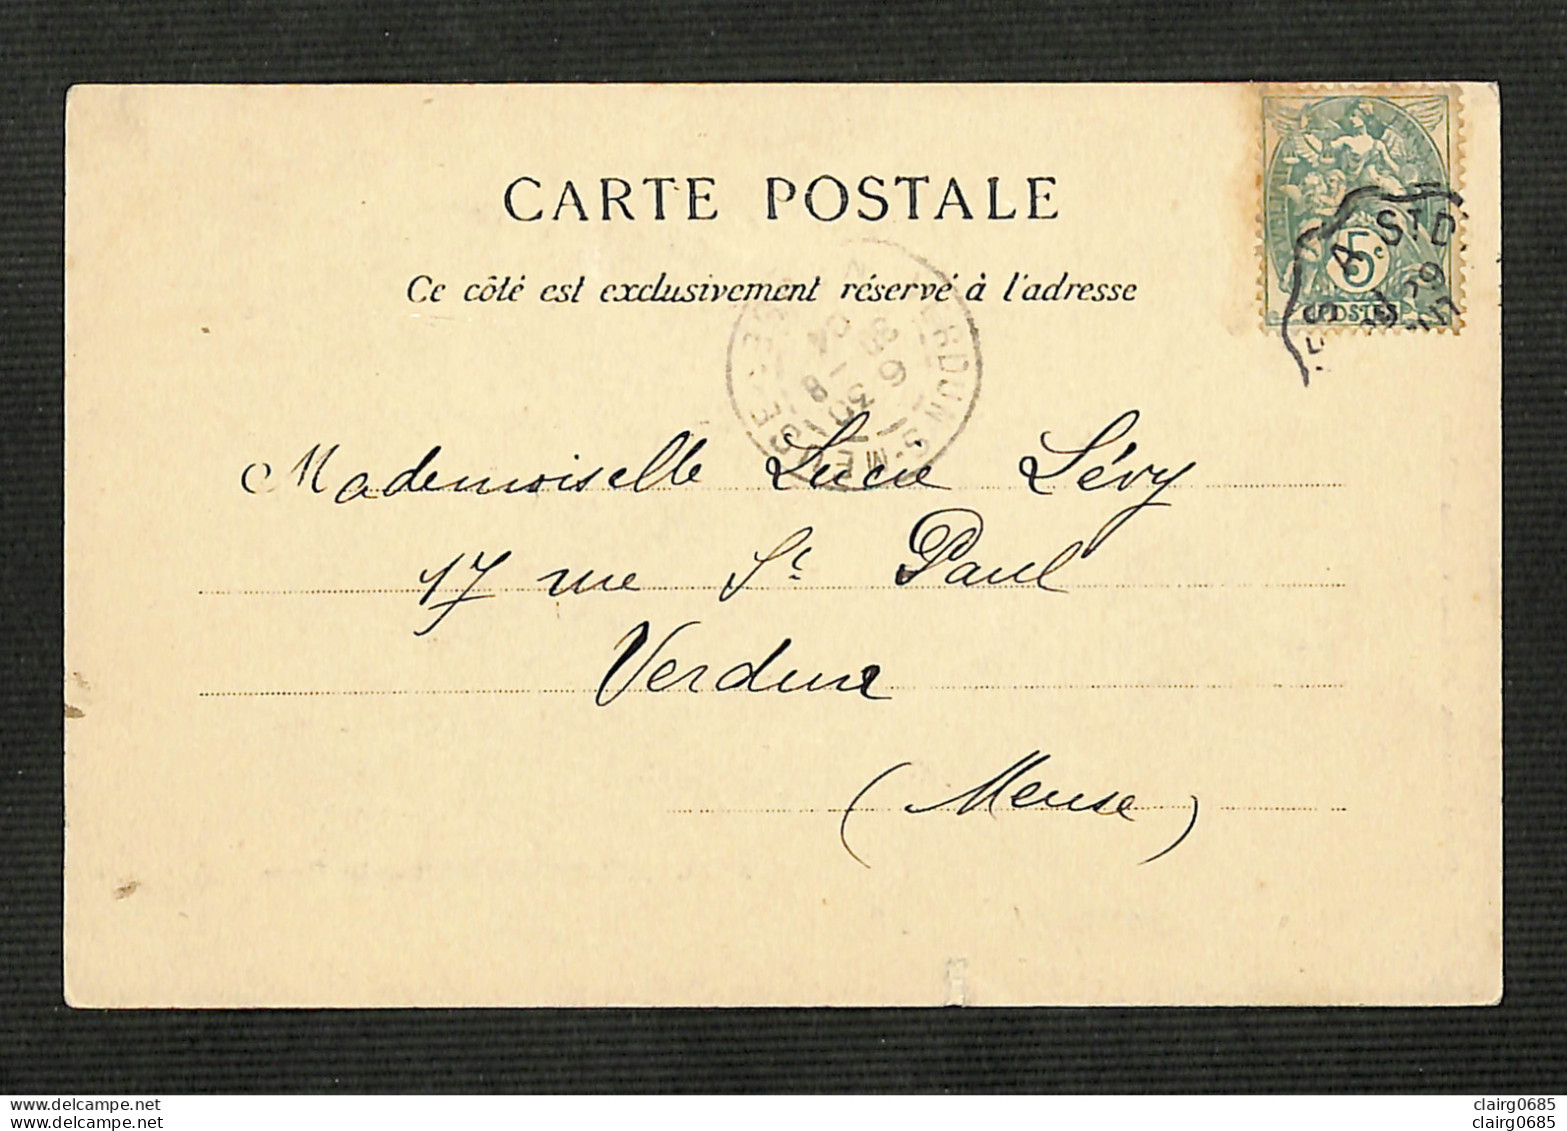 CARTE POSTALE
Ce côté est exclusivement réservé à l'adresse
A ST D
5c
POSTES
VERDUN-S-MEUSE
MEUSE
Mademoiselle Lucie Lévy
17 rue St Paul
Verdun
(Meuse)
www.delcampe.net
www.delcampe.net
clairg0685
clairg0685